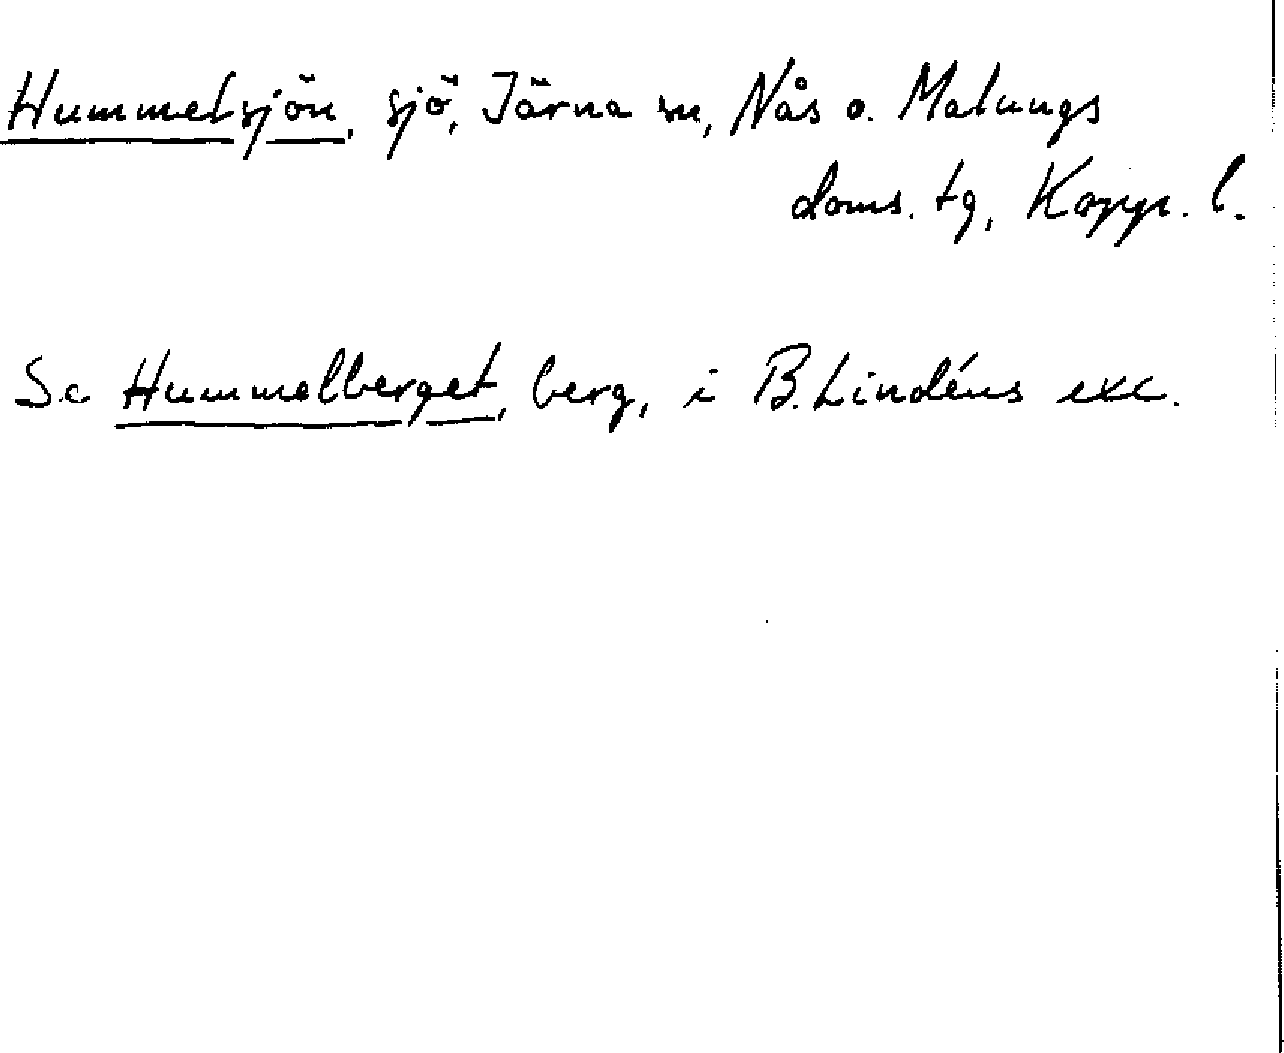 Hummelsjön, sjö, Järna sn, Nås o. Malungs
doms. tg, Kopp. l.
Se Hummelberget, berg, i B. Lindéns exc.